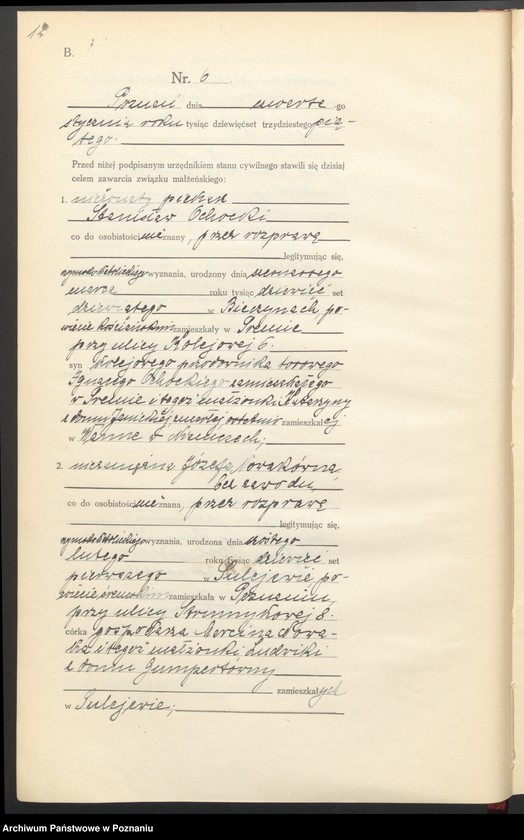 12
B.
Nr. 6
Poznań dnia czwarte -go
stycznia roku tysiąc dziewięćset trzydziestego pią-
tego.
Przed niżej podpisanym urzędnikiem stanu cywilnego stawili się dzisiaj
celem zawarcia związku małżeńskiego:
1. nieżonaty piekarz
Stanisław Ochocki
co do osobistości nieznany, przez rozprawę
legitymując się,
rzymsko katolickiego wyznania, urodzony dnia
marca roku tysiąc dziewięć set
dziewiątego w Bieczynach po-
wiecie Kościańskim zamieszkały w Śremie
przy ulicy Kolejowej 6.
syn kolejowego przodownika torowego
Ignacego Ochockiego zamieszkałego
w Śremie i tegoż małżonki Katarzyny
z domu Janickiej zmarłej ostatnio zamieszkałej
w Wanne w Niemczech;
2. niezamężna Józefa Nowakówna
bez zawodu,
co do osobistości nieznana, przez rozprawę
legitymując się,
rzymsko katolickiego wyznania, urodzona dnia szóstego
lutego roku tysiąc dziewięć set
pierwszego w Sulejewie po-
wiecie śremskim zamieszkała w Poznaniu,
przy ulicy Strumykowej 8.
córka gospodarza Marcina Nowa-
ka i tegoż małżonki Ludwiki
z domu
zamieszkałych
w Sulejewie;
Archiwum Państwowe w Poznaniu